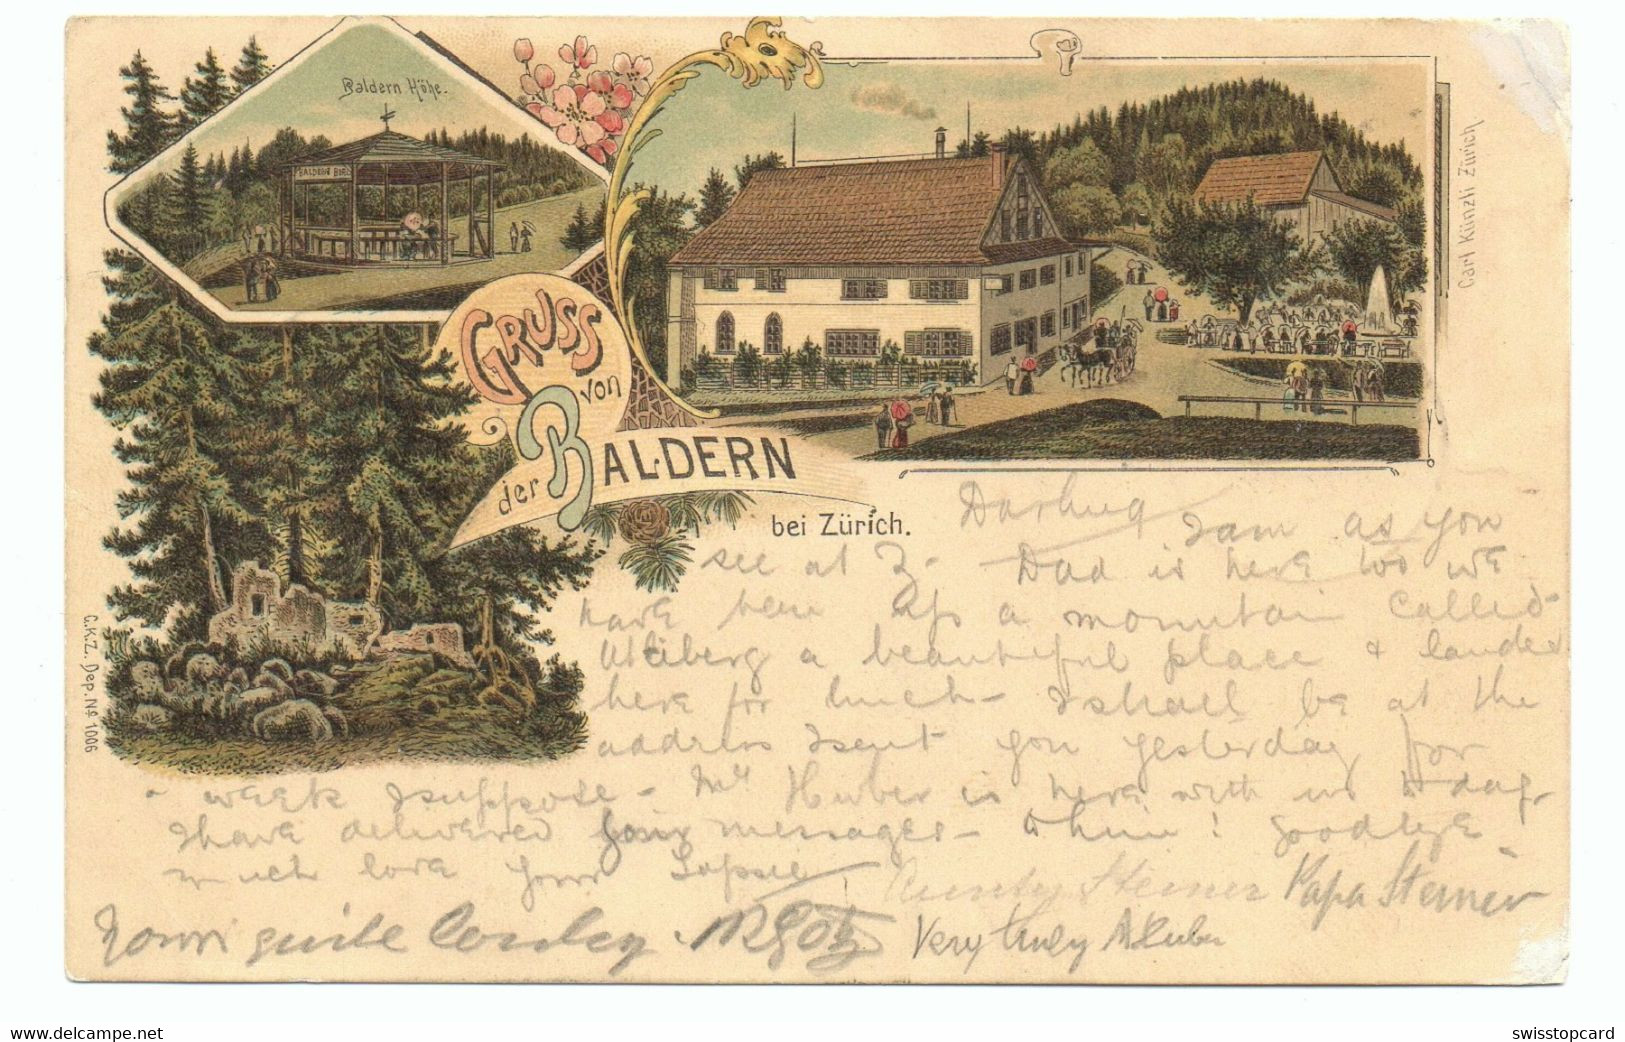 Baldern Höhe.
BALDERN
GRUSS
von
der BALDERN
bei Zürich.
Carl Künzli Zürich
C.K.Z. Dep. No 1006
Darling I am as you
see at Z. Dad is here too we
have been up a mountain called
Utliberg a beautiful place & landed
here for lunch - I shall be at the
address I sent you yesterday for
a week I suppose - Mr Huber is here with us to day.
I have delivered your messages - to him! Goodbye
much love your
Aunty Steiner Papa Steiner
Yours quite
Very truly A Huber
www.delcampe.net
swisstopcard